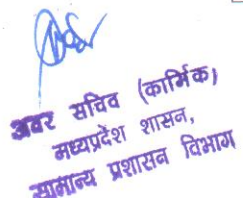 अवर सचिव (कार्मिक)
मध्यप्रदेश शासन,
सामान्य प्रशासन विभाग